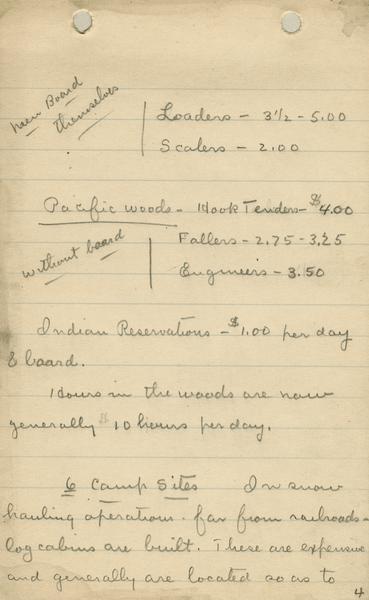 men Board
themselves
Loaders - 3 1/2 - 5.00
Scalers - 2.00
Pacific woods - Hook Tenders - $4.00
without board
Fallers - 2.75 - 3.25
Engineers - 3.50
Indian Reservations - $1.00 per day
& board.
Hours in the woods are now
generally 10 hours per day.
6 Camp Sites In snow
hauling operations far from railroads -
log cabins are built. These are expensive
and generally are located so as to
4